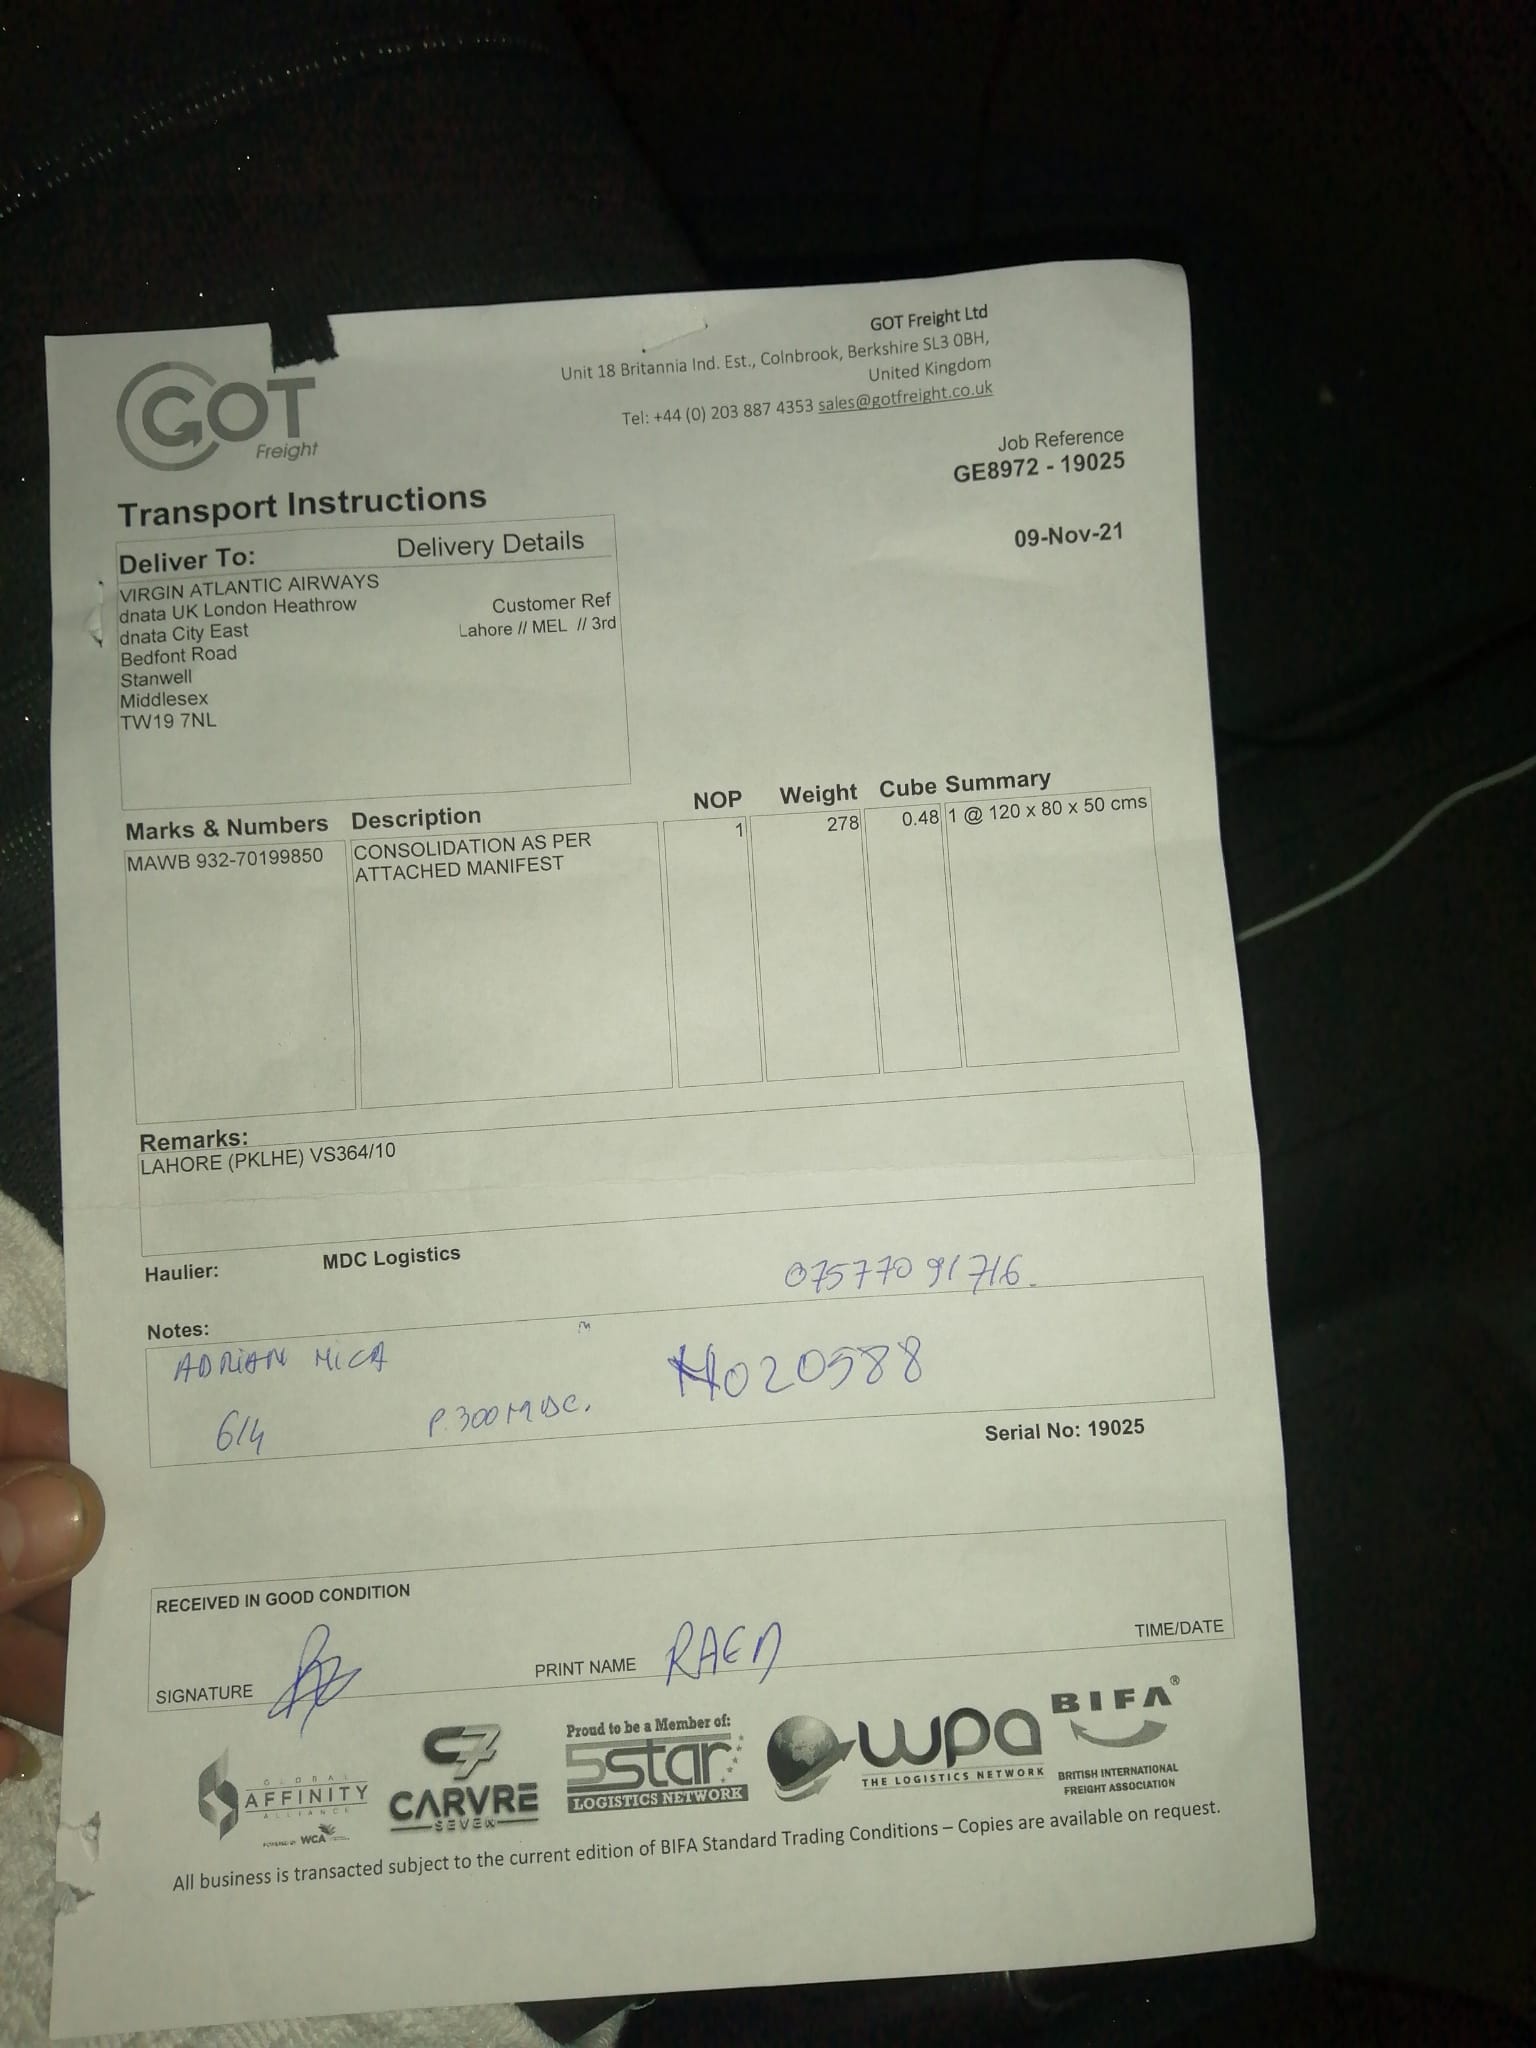 GOT
Freight
GOT Freight Ltd
Unit 18 Britannia Ind. Est., Colnbrook, Berkshire SL3 0BH,
United Kingdom
Tel: +44 (0) 203 887 4353 sales@gotfreight.co.uk
Job Reference
GE8972 - 19025
Transport Instructions
09-Nov-21
Deliver To: Delivery Details
VIRGIN ATLANTIC AIRWAYS
dnata UK London Heathrow Customer Ref
dnata City East Lahore // MEL // 3rd
Bedfont Road
Stanwell
Middlesex
TW19 7NL
Marks & Numbers Description NOP Weight Cube Summary
MAWB 932-70199850 CONSOLIDATION AS PER 1 278 0.48 1 @ 120 x 80 x 50 cms
ATTACHED MANIFEST
Remarks:
LAHORE (PKLHE) VS364/10
Haulier: MDC Logistics 07577091716.
Notes:
ADRIAN MICA
6/4 P.300MDC. H020588
Serial No: 19025
RECEIVED IN GOOD CONDITION
SIGNATURE PRINT NAME TIME/DATE
GLOBAL
AFFINITY
ALLIANCE
POWERED BY WCA
C7
CARVRE
SEVEN
Proud to be a Member of:
5star
LOGISTICS NETWORK
wpa
THE LOGISTICS NETWORK
BIFA®
BRITISH INTERNATIONAL
FREIGHT ASSOCIATION
All business is transacted subject to the current edition of BIFA Standard Trading Conditions – Copies are available on request.